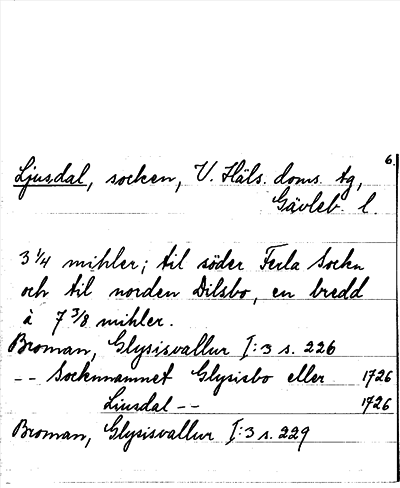 6.
Ljusdal, socken, V. Häls. doms. tg,
Gävleb. l.
3 1/4 mihler; til söder Ferla Sockn
och til norden Dilsbo, en bredd
à 7 3/8 mihler.
Broman, Glysisvallur I:3 s. 226
-- Socknnamnet Glysisbo eller 1726
Liusdal -- 1726
Broman, Glysisvallur I:3 s. 229